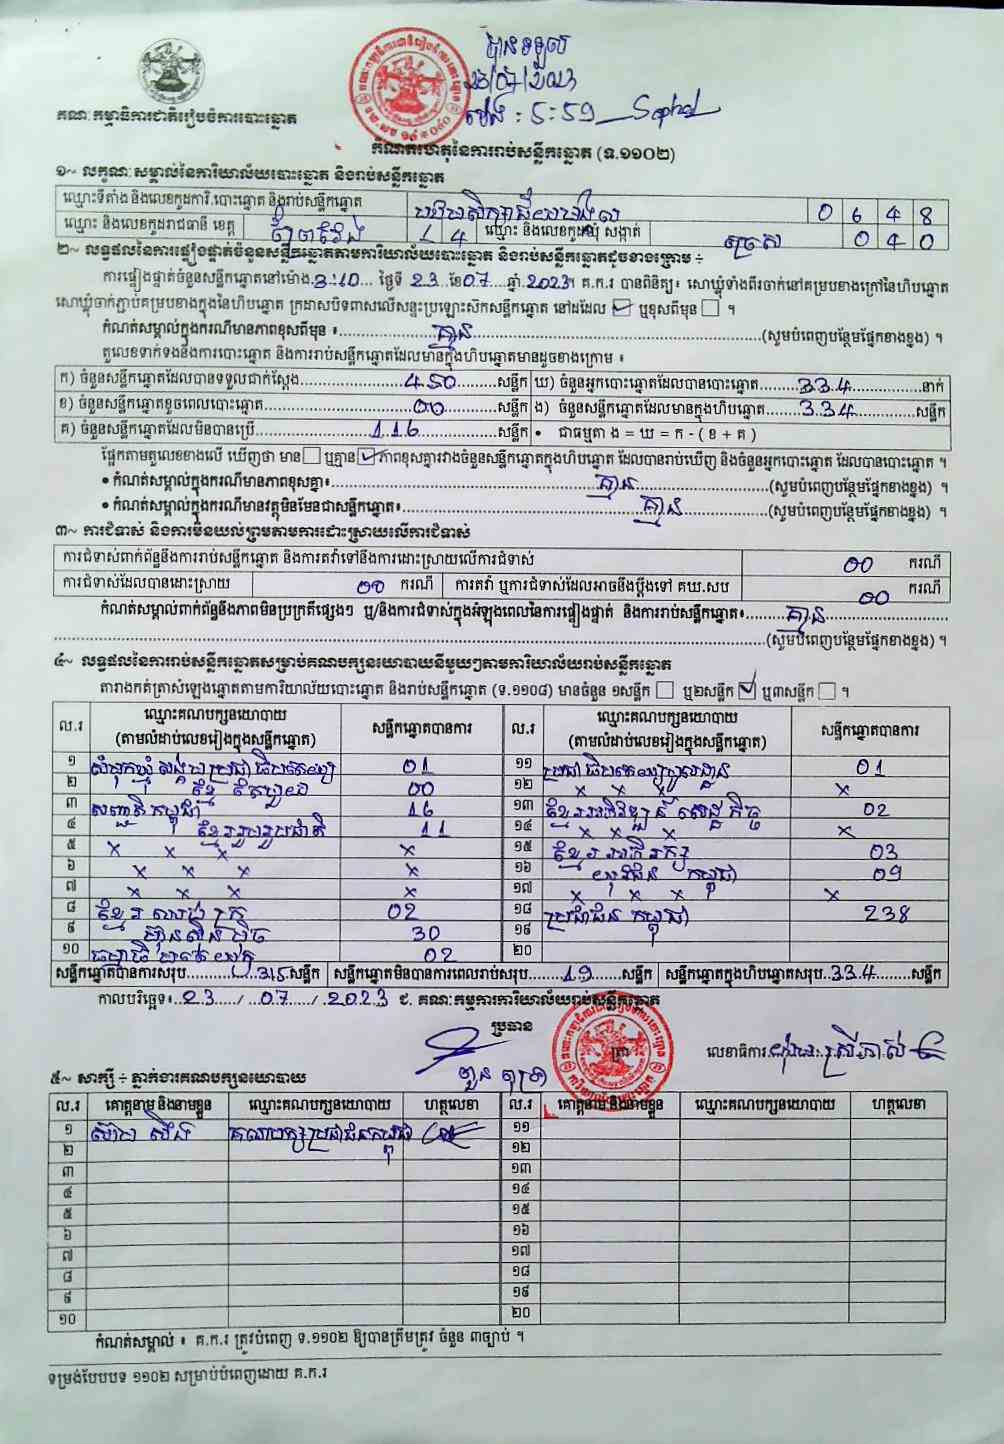 បានទទួល
ម៉ោង : 5:59 Sophal
គណៈកម្មាធិការជាតិរៀបចំការបោះឆ្នោត
កំណត់ហេតុនៃការរាប់សន្លឹកឆ្នោត (ទ.១១០២)
១~ លក្ខណៈសម្គាល់នៃការិយាល័យបោះឆ្នោត និងរាប់សន្លឹកឆ្នោត
ឈ្មោះទីតាំង និងលេខកូដការិ.បោះឆ្នោត និងរាប់សន្លឹកឆ្នោត 0 6 4 8
ឈ្មោះ និងលេខកូដរាជធានី ខេត្ត ព្រៃវែង 1 4 ឈ្មោះ និងលេខកូដឃុំ សង្កាត់ 0 4 0
២~ លទ្ធផលនៃការផ្ទៀងផ្ទាត់ចំនួនសន្លឹកឆ្នោតតាមការិយាល័យបោះឆ្នោត និងរាប់សន្លឹកឆ្នោតដូចខាងក្រោម ÷
ការផ្ទៀងផ្ទាត់ចំនួនសន្លឹកឆ្នោតនៅម៉ោង 3:10 ថ្ងៃទី 23 ខែ 07 ឆ្នាំ 2023។ គ.ក.រ បានពិនិត្យ៖ សោឃ្លុំទាំងពីរចាក់នៅគម្របខាងក្រៅនៃហិបឆ្នោត
សោឃ្លុំចាក់ភ្ជាប់គម្របខាងក្នុងនៃហិបឆ្នោត ក្រដាសបិទពាសលើសន្ទះប្រឡោះស៊កសន្លឹកឆ្នោត នៅដដែល ☑ ឬខុសពីមុន ☐ ។
កំណត់សម្គាល់ក្នុងករណីមានភាពខុសពីមុន ៖ គ្មាន (សូមបំពេញបន្ថែមផ្នែកខាងខ្នង) ។
តួលេខទាក់ទងនឹងការបោះឆ្នោត និងការរាប់សន្លឹកឆ្នោតដែលមានក្នុងហិបឆ្នោតមានដូចខាងក្រោម ៖
ក) ចំនួនសន្លឹកឆ្នោតដែលបានទទួលជាក់ស្តែង 450 សន្លឹក ឃ) ចំនួនអ្នកបោះឆ្នោតដែលបានបោះឆ្នោត 334 នាក់
ខ) ចំនួនសន្លឹកឆ្នោតខូចពេលបោះឆ្នោត 00 សន្លឹក ង) ចំនួនសន្លឹកឆ្នោតដែលមានក្នុងហិបឆ្នោត 334 សន្លឹក
គ) ចំនួនសន្លឹកឆ្នោតដែលមិនបានប្រើ 116 សន្លឹក • ជាធម្មតា ង = ឃ = ក - ( ខ + គ )
ផ្អែកតាមតួលេខខាងលើ ឃើញថា មាន ☐ ឬគ្មាន ☑ ភាពខុសគ្នារវាងចំនួនសន្លឹកឆ្នោតក្នុងហិបឆ្នោត ដែលបានរាប់ឃើញ និងចំនួនអ្នកបោះឆ្នោត ដែលបានបោះឆ្នោត ។
• កំណត់សម្គាល់ក្នុងករណីមានភាពខុសគ្នា៖ គ្មាន (សូមបំពេញបន្ថែមផ្នែកខាងខ្នង) ។
• កំណត់សម្គាល់ក្នុងករណីមានវត្ថុមិនមែនជាសន្លឹកឆ្នោត៖ គ្មាន (សូមបំពេញបន្ថែមផ្នែកខាងខ្នង) ។
៣~ ការជំទាស់ និងការមិនយល់ព្រមតាមការដោះស្រាយលើការជំទាស់
ការជំទាស់ពាក់ព័ន្ធនឹងការរាប់សន្លឹកឆ្នោត និងការតវ៉ាទៅនឹងការដោះស្រាយលើការជំទាស់ 00 ករណី
ការជំទាស់ដែលបានដោះស្រាយ 00 ករណី ការតវ៉ា ឬការជំទាស់ដែលអាចនឹងប្តឹងទៅ គឃ.សប 00 ករណី
កំណត់សម្គាល់ពាក់ព័ន្ធនឹងភាពមិនប្រក្រតីផ្សេងៗ ឬ/និងការជំទាស់ក្នុងអំឡុងពេលនៃការផ្ទៀងផ្ទាត់ និងការរាប់សន្លឹកឆ្នោត៖ គ្មាន
(សូមបំពេញបន្ថែមផ្នែកខាងខ្នង) ។
៤~ លទ្ធផលនៃការរាប់សន្លឹកឆ្នោតសម្រាប់គណបក្សនយោបាយនីមួយៗតាមការិយាល័យរាប់សន្លឹកឆ្នោត
តារាងកត់ត្រាសំឡេងឆ្នោតតាមការិយាល័យបោះឆ្នោត និងរាប់សន្លឹកឆ្នោត (ទ.១១០៨) មានចំនួន ១សន្លឹក ☐ ឬ២សន្លឹក ☑ ឬ៣សន្លឹក ☐ ។
ល.រ ឈ្មោះគណបក្សនយោបាយ (តាមលំដាប់លេខរៀងក្នុងសន្លឹកឆ្នោត) សន្លឹកឆ្នោតបានការ ល.រ ឈ្មោះគណបក្សនយោបាយ (តាមលំដាប់លេខរៀងក្នុងសន្លឹកឆ្នោត) សន្លឹកឆ្នោតបានការ
១ សំបុកឃ្មុំសង្គមប្រជាធិបតេយ្យ 01 ១១ ប្រជាធិបតេយ្យមូលដ្ឋាន 01
២ ខ្មែរ 00 ១២ ×
៣ សញ្ជាតិកម្ពុជា 16 ១៣ ខ្មែរអភិវឌ្ឍន៍សេដ្ឋកិច្ច 02
៤ ខ្មែររួបរួមជាតិ 11 ១៤ × × × ×
៥ × × × × ១៥ ខ្មែរអភិរក្ស 03
៦ × × × × ១៦ យុវជន កម្ពុជា 09
៧ × × × × ១៧ × × × ×
៨ ខ្មែរ 02 ១៨ ប្រជាជន កម្ពុជា 238
៩ ហ៊្វុនស៊ិនប៉ិច 30 ១៩
១០ ធម្មាធិបតេយ្យ 02 ២០
សន្លឹកឆ្នោតបានការសរុប 315 សន្លឹក សន្លឹកឆ្នោតមិនបានការពេលរាប់សរុប 19 សន្លឹក សន្លឹកឆ្នោតក្នុងហិបឆ្នោតសរុប 334 សន្លឹក
កាលបរិច្ឆេទ៖ 23 / 07 / 2023 ជ. គណៈកម្មការការិយាល័យរាប់សន្លឹកឆ្នោត
ប្រធាន
ត្រា
លេខាធិការ
៥~ សាក្សី ÷ ភ្នាក់ងារគណបក្សនយោបាយ
ល.រ គោត្តនាម និងនាមខ្លួន ឈ្មោះគណបក្សនយោបាយ ហត្ថលេខា ល.រ គោត្តនាម និងនាមខ្លួន ឈ្មោះគណបក្សនយោបាយ ហត្ថលេខា
១ គណបក្សប្រជាជនកម្ពុជា ១១
២ ១២
៣ ១៣
៤ ១៤
៥ ១៥
៦ ១៦
៧ ១៧
៨ ១៨
៩ ១៩
១០ ២០
កំណត់សម្គាល់ ៖ គ.ក.រ ត្រូវបំពេញ ទ.១១០២ ឱ្យបានត្រឹមត្រូវ ចំនួន ៣ច្បាប់ ។
ទម្រង់បែបបទ ១១០២ សម្រាប់បំពេញដោយ គ.ក.រ